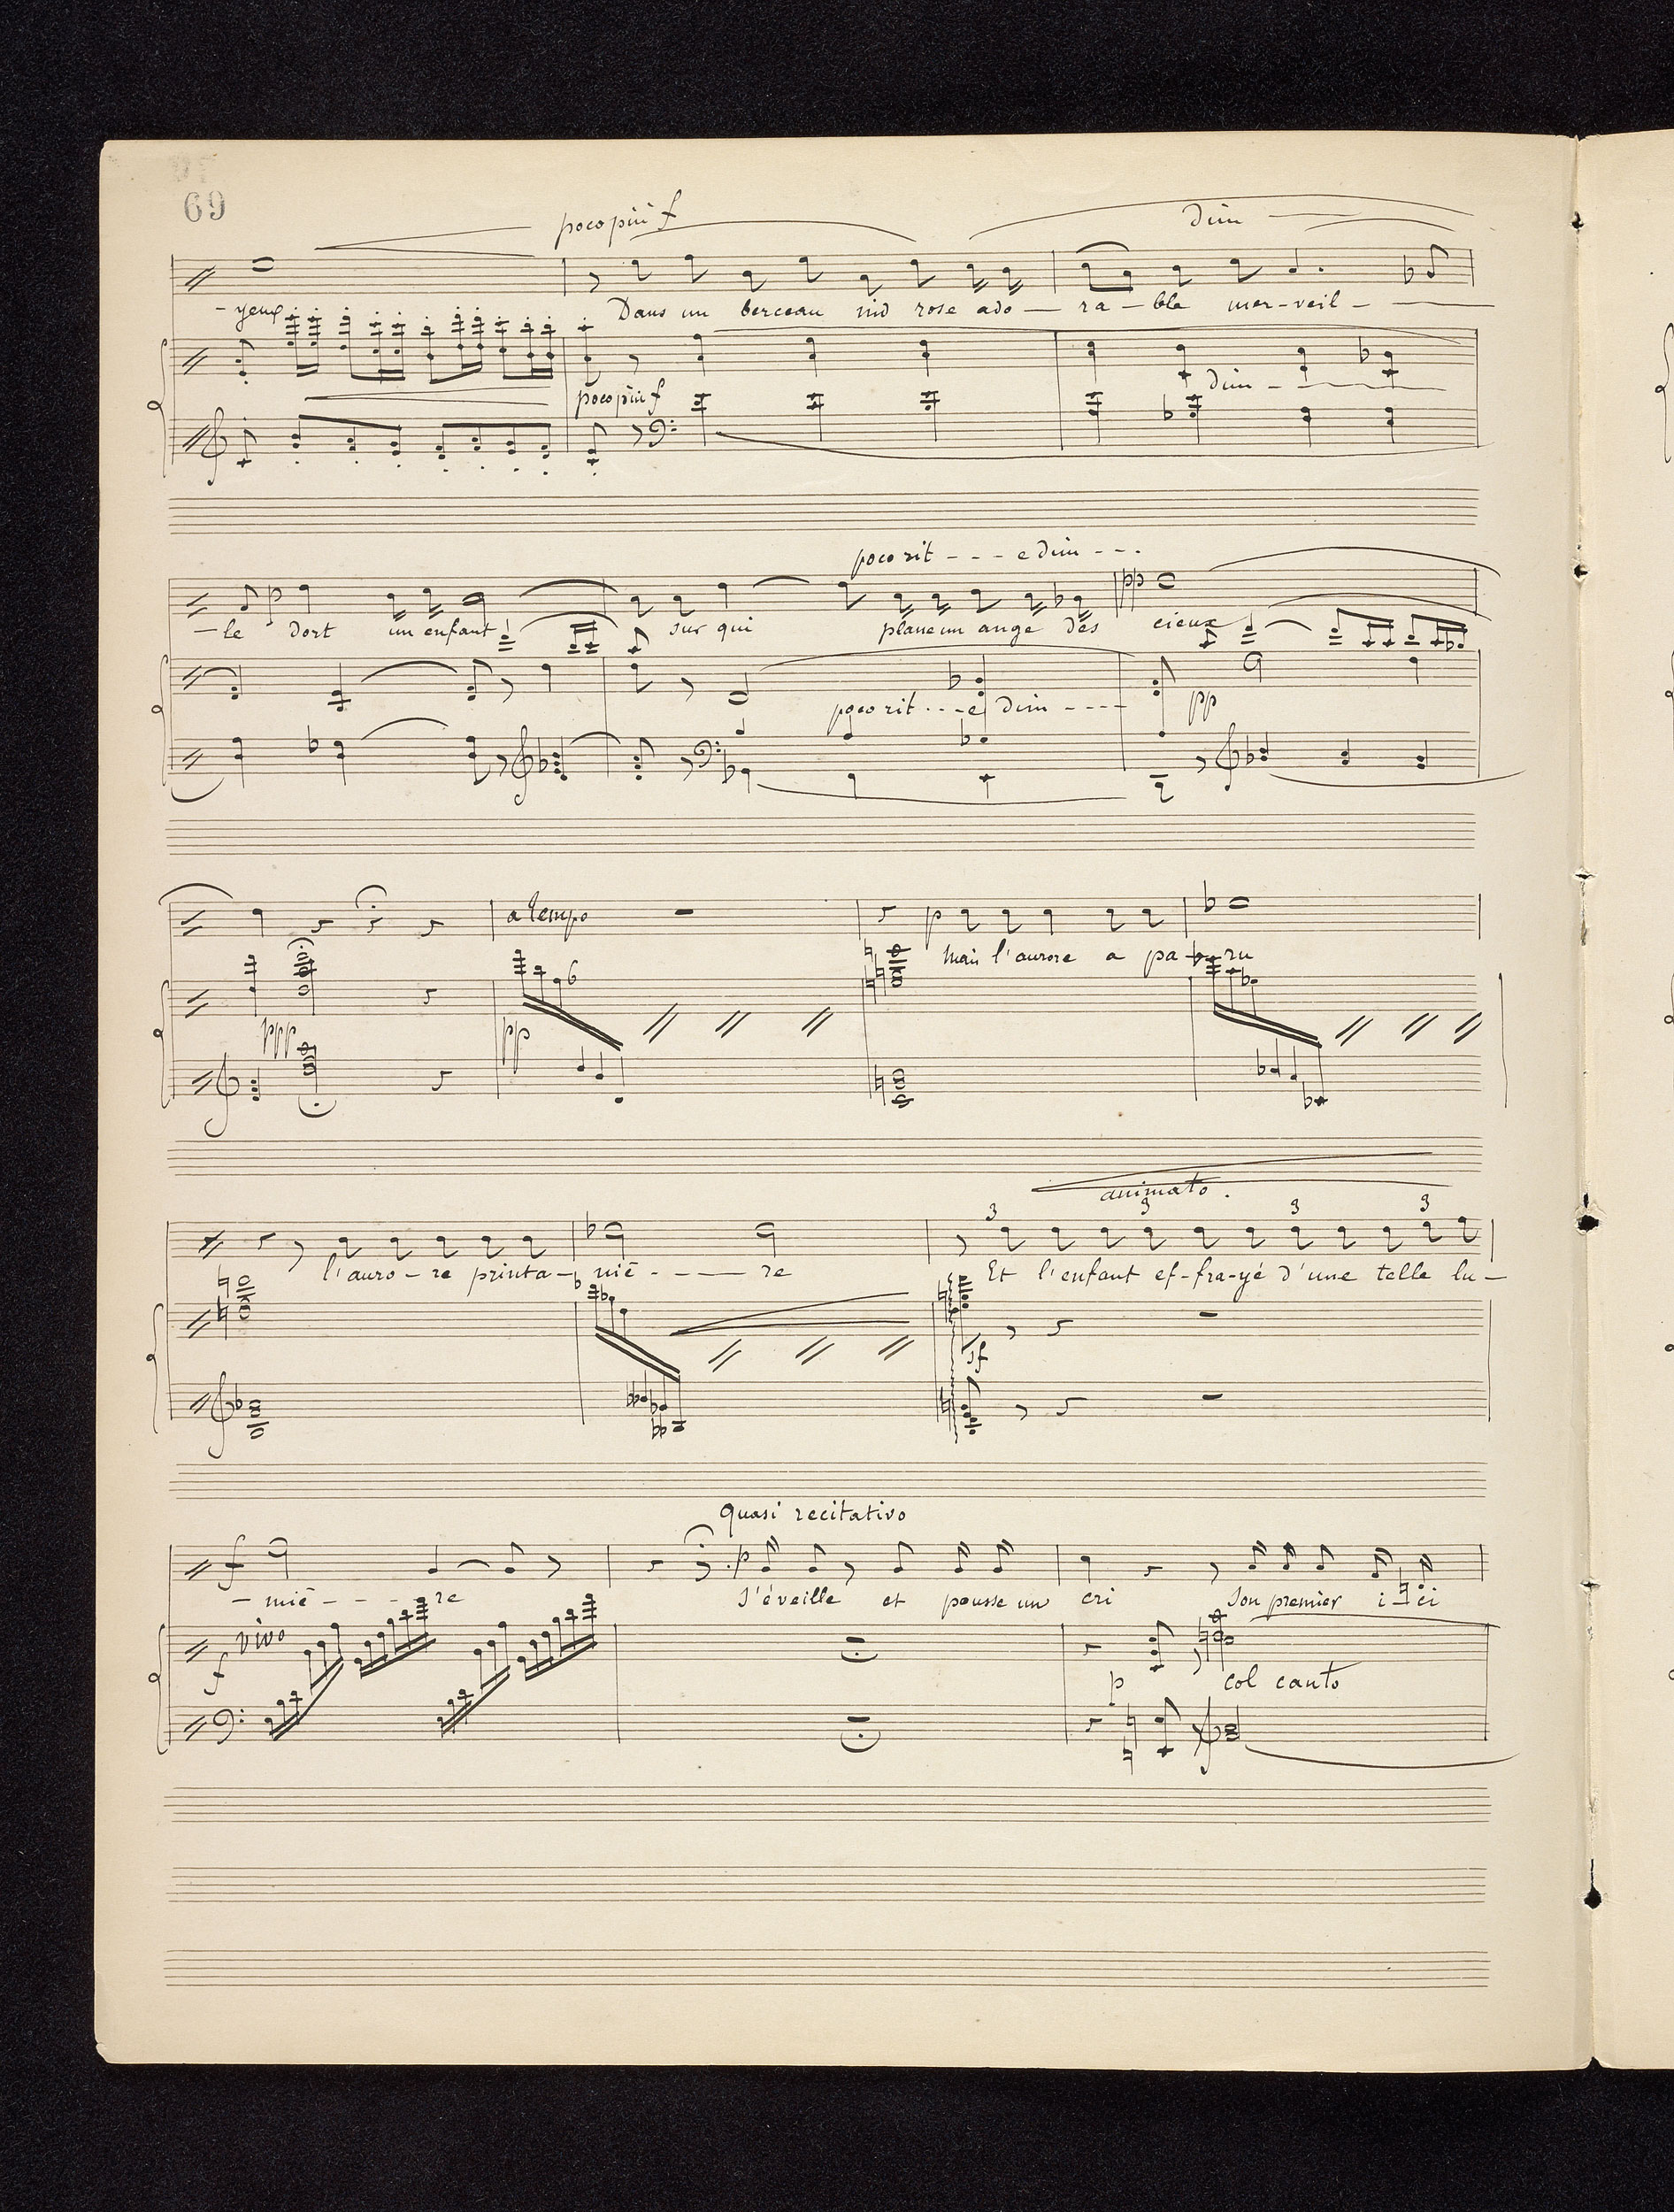 69
poco più f dim
- yeux Dans un berceau nid rose ado - ra - ble mer - veil -
poco più f dim
poco rit - - - e dim - - -
pp
- le dort un enfant sur qui plane un ange des cieux
poco rit - - - e dim - - - - pp
a tempo p
Mais l'aurore a pa - ru
6
ppp pp
animato.
3 3 3 3
l'auro - re printa - niè - - - re Et l'enfant ef - fra - yé d'une telle lu -
sf
Quasi recitativo
f p
- miè - - - re s'éveille et pousse un cri Son premier i - ci
vivo
f p col canto